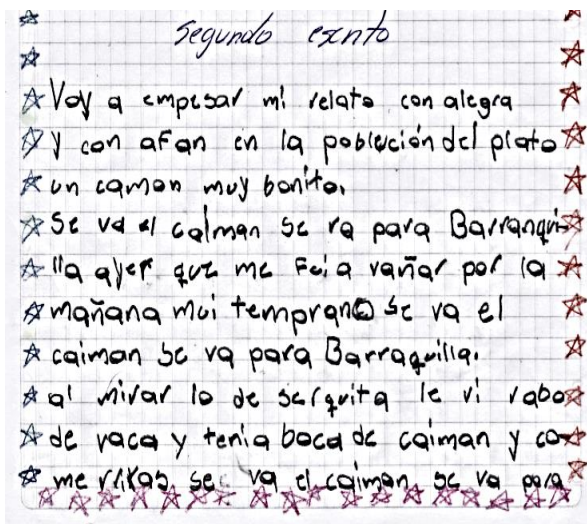 Segundo escrito
Voy a empesar mi relato con alegra
y con afan en la poblución del plato
un camon muy bonito.
Se va el calman se va para Barranqui-
lla ayer que me fui a vañar por la
mañana mui temprano se va el
caiman se va para Barraquilla.
al mirar lo de serquita le vi rabo
de vaca y tenia boca de caiman y co-
me se va el caiman se va para